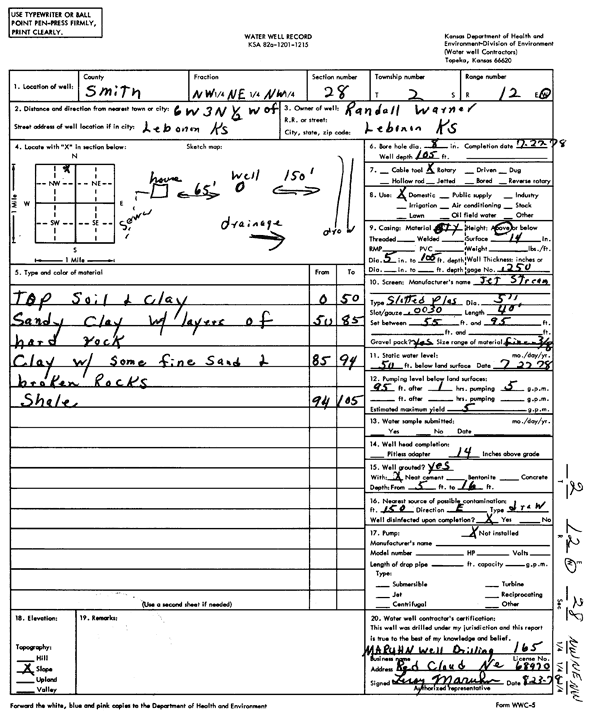 USE TYPEWRITER OR BALL
POINT PEN-PRESS FIRMLY,
PRINT CLEARLY.
WATER WELL RECORD
KSA 82a-1201-1215
Kansas Department of Health and
Environment-Division of Environment
(Water well Contractors)
Topeka, Kansas 66620
1. Location of well:
County
Smith
Fraction
NW 1/4 NE 1/4 NW 1/4
Section number
28
Township number
T 2 S
Range number
R 12 E W
2. Distance and direction from nearest town or city: 6W 3N ½ W of
Street address of well location if in city: Lebonon Ks
3. Owner of well: Randall Warner
R.R. or street:
City, state, zip code: Lebonon KS
4. Locate with "X" in section below:
Sketch map:
N
X
NW
NE
W
E
SW
SE
S
1 Mile
1 Mile
house
65'
well
150'
Sewer
drainage
5. Type and color of material
From
To
Top Soil & Clay 0 50
Sandy Clay w/ layers of 50 85
hard rock
Clay w/ some fine Sand & 85 94
broken Rocks
Shale 94 105
(Use a second sheet if needed)
6. Bore hole dia. 8 in. Completion date 7-22-78
Well depth 105 ft.
7. Cable tool X Rotary Driven Dug
Hollow rod Jetted Bored Reverse rotary
8. Use: X Domestic Public supply Industry
Irrigation Air conditioning Stock
Lawn Oil field water Other
9. Casing: Material Height: Above or below
Threaded Welded Surface 14 in.
RMP PVC Weight lbs./ft.
Dia. 5 in. to 105 ft. depth Wall Thickness: inches or
Dia. in. to ft. depth gage No. .250
10. Screen: Manufacturer's name Jet Stream
Type Slotted Plas Dia. 5"
Slot/gauze .0030 Length 40'
Set between 55 ft. and 95 ft.
ft. and ft.
Gravel pack? yes Size range of material fine 3/8
11. Static water level: mo./day/yr.
50 ft. below land surface Date 7-22-78
12. Pumping level below land surfaces:
95 ft. after 1 hrs. pumping 5 g.p.m.
ft. after hrs. pumping g.p.m.
Estimated maximum yield 5 g.p.m.
13. Water sample submitted: mo./day/yr.
Yes No Date
14. Well head completion:
Pitless adapter 14 Inches above grade
15. Well grouted? yes
With: X Neat cement Bentonite Concrete
Depth: From 5 ft. to 16 ft.
16. Nearest source of possible contamination:
ft. 150 Direction E Type
Well disinfected upon completion? X Yes No
17. Pump: X Not installed
Manufacturer's name
Model number HP Volts
Length of drop pipe ft. capacity g.p.m.
Type:
Submersible Turbine
Jet Reciprocating
Centrifugal Other
18. Elevation:
Topography:
Hill
X Slope
Upland
Valley
19. Remarks:
20. Water well contractor's certification:
This well was drilled under my jurisdiction and this report
is true to the best of my knowledge and belief.
MARUHN Well Drilling 165
Business name License No.
Address Red Cloud Ne 68970
Signed Leroy Maruhn 8-23-78
Authorized representative
Forward the white, blue and pink copies to the Department of Health and Environment
Form WWC-5
T 2 R 12 E W Sec 28 NW NE NW
1/4 1/4 1/4